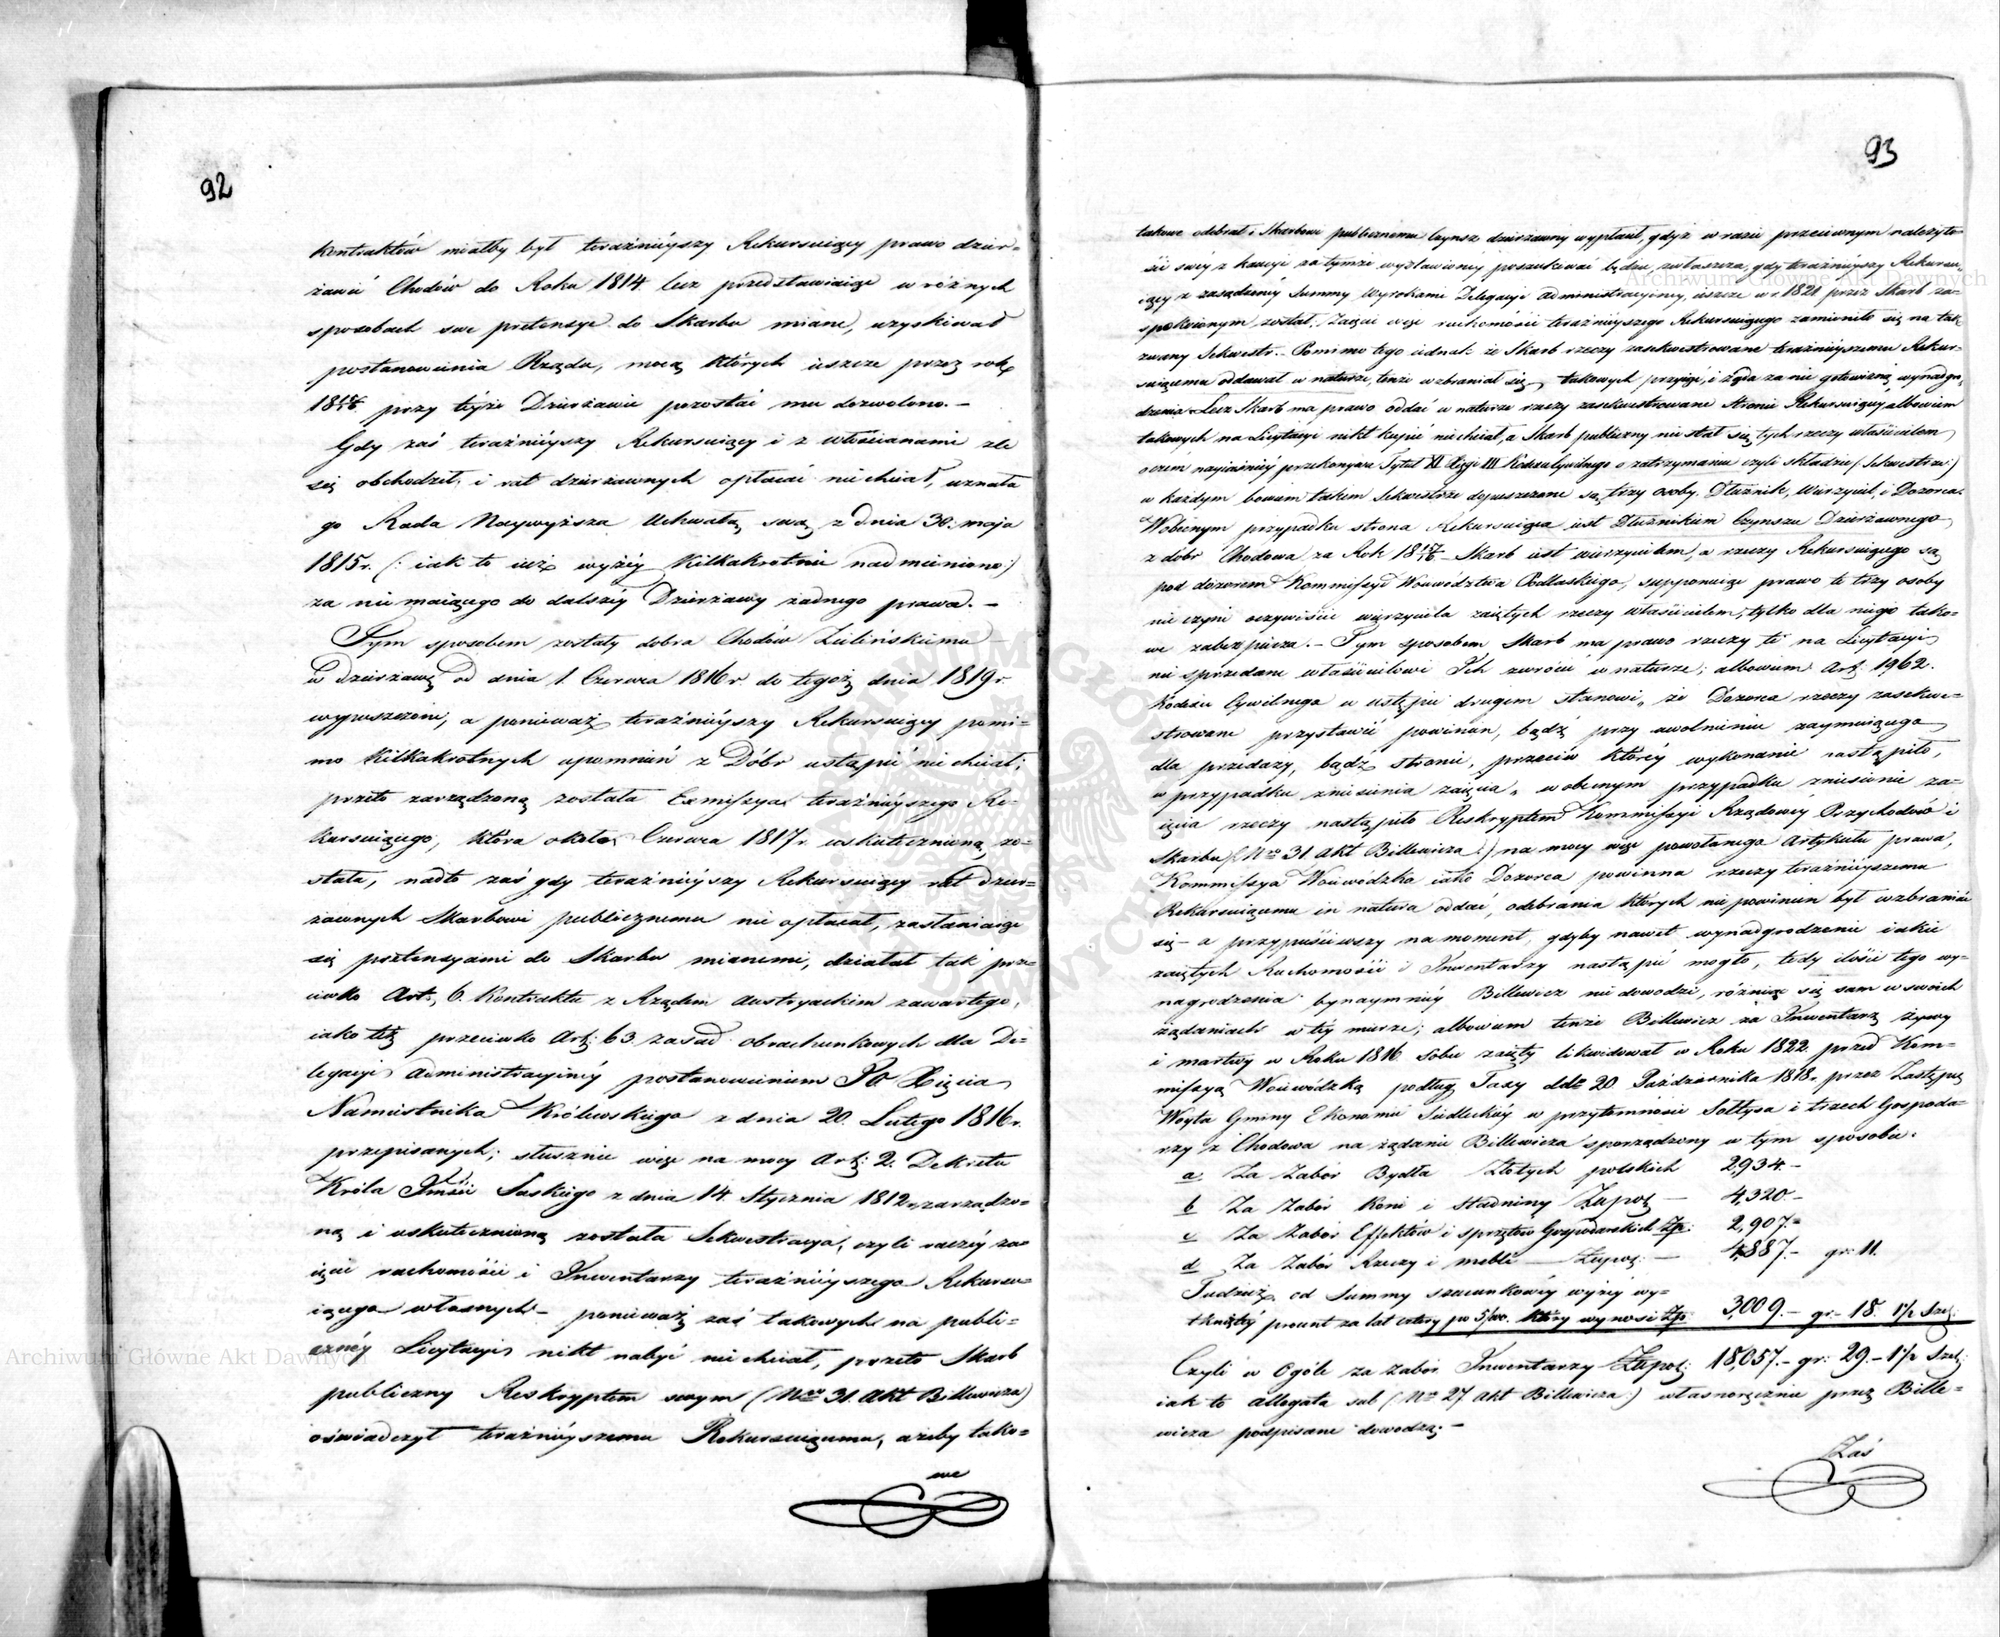 92
kontraktów miałby był teraźnieyszy Rekursuiący prawo dzier-
żawić Chodów do Roku 1814. lecz przedstawiaiąc w różnych
sposobach swe pretensye do Skarbu miane, uzyskiwał
postanowienia Rządu, mocą których ieszcze przez rok
1816/17. przy teyże Dzierżawie pozostać mu dozwolono. -
Gdy zaś teraźnieyszy Rekursuiący i z włościanami źle
się obchodził, i rat dzierżawnych opłacać niechciał, uznała
go Rada Naywyższa Uchwałą swą z dnia 30. maja
1815r. (: iak to iuż wyżey kilkakrotnie nadmieniono :)
za nie maiącego do dalszey Dzierżawy żadnego prawa. -
Tym sposobem zostały dobra Chodów Zielińskiemu
w dzierżawę od dnia 1. Czerwca 1816r do tegoż dnia 1819r.
wypuszczone, a ponieważ teraźnieyszy Rekursuiący pomi-
mo kilkakrotnych upomnień z Dóbr ustąpić niechciał;
przeto zarządzoną została Exmissya teraźnieyszego Re-
kursuiącego, która około Czerwca 1817r. uskutecznioną zo-
stała, nadto zaś gdy teraźnieyszy Rekursuiący rat dzier-
żawnych Skarbowi publicznemu nie opłacał, zasłaniaiąc
się pretensyami do Skarbu mianemi, działał tak prze-
ciwko Art: 6. Kontraktu z Rządem Austryackim zawartego,
iako też przeciwko Art: 63. zasad obrachunkowych dla De-
legacyi Administracyiney postanowieniem JO Xięcia
Namiestnika Królewskiego z dnia 20. Lutego 1816r.
przepisanych; słusznie więc na mocy Art: 2. Dekretu
Króla Jmści Saskiego z dnia 14. Stycznia 1812r. zarządzo-
ną i uskutecznioną została Sekwestracya, czyli raczey za-
ięcie ruchomości i Inwentarzy teraźnieyszego Rekursu-
iącego własnych - ponieważ zaś takowych na publi-
czney Licytacyi nikt nabyć niechciał, przeto Skarb
publiczny Reskryptem swym (Nro 31. Akt Billewicza)
oświadczył teraźnieyszemu Rekursuiącemu, ażeby tako-
we
93
takowe odebrał i Skarbowi publicznemu Czynsz dzierżawny wypłacił, gdyż w razie przeciwnym należyto-
ści swey z kaucyi za tymże wystawioney poszukiwać będzie, zwłaszcza, gdy teraźnieyszy Rekursu-
iący z zasądzoney Summy Wyrokami Delegacyi Administracyiney, ieszcze w r. 1821. przez Skarb za-
spokoionym został. Zaięcie więc ruchomości teraźnieyszego Rekursuiącego zamieniło się na tak
zwany Sekwestr. - Pomimo tego iednak że Skarb rzeczy zasekwestrowane teraźnieyszemu Rekur-
suiącemu oddawał w naturze, tenże wzbraniał się takowych przyiąć, i żąda za nie gotowizną wynadgro-
dzenia. Lecz Skarb ma prawo oddać w naturze rzeczy zasekwestrowane Stronie Rekursuiącey albowiem
takowych na Licytacyi nikt kupić niechciał, a Skarb publiczny nie stał się tych rzeczy właścicielem,
o czem nayiaśniey przekonywa Tytuł XI. Xięgi III Kodexu Cywilnego o zatrzymaniu czyli składzie (: Sekwestrze :)
w każdym bowiem takim Sekwestrze dopuszczone są trzy osoby, Dłużnik, Wierzyciel, i Dozorca.
W obecnym przypadku strona Rekursuiąca iest Dłużnikiem Czynszu Dzierżawnego
z dóbr Chodowa za Rok 1816/17 - Skarb iest wierzycielem, a rzeczy Rekursuiącego są
pod dozorem Kommissyi Woiewództwa Podlaskiego, supponuiąc prawo te trzy osoby
nie czyni oczywiście wierzyciela zaiętych rzeczy właścicielem, tylko dla niego tako-
we zabezpiecza. - Tym sposobem Skarb ma prawo rzeczy te na Licytacyi
nie sprzedane właścicielowi Ich zwrócić w naturze; albowiem Art: 1962.
Kodexu Cywilnego w ustępie drugim stanowi, że Dozorca rzeczy zasekwe-
strowane przystawić powinien, bądź przy uwolnieniu zaymuiącego
dla przedaży, bądź stronie, przeciw którey wykonanie nastąpiło,
w przypadku zniesienia zaięcia, w obecnym przypadku zniesienie za-
ięcia rzeczy nastąpiło Reskryptem Kommissyi Rządowey Przychodów i
Skarbu (: Nro 31. Akt Billewicza :) na mocy więc powołanego Artykułu prawa,
Kommissya Woiewódzka iako Dozorca powinna rzeczy teraźnieyszemu
Rekursuiącemu in natura oddać, odebrania których nie powinien był wzbraniać
się - a przypuściwszy na moment, gdyby nawet wynadgrodzenie iakie
zaiętych Ruchomości i Inwentarzy nastąpić mogło, tedy ilości tego wy-
nagrodzenia bynaymniey Billewicz nie dowodzi, różniąc się sam w swoich
żądaniach w tey mierze; albowiem tenże Billewicz za Inwentarz żywy
i martwy w Roku 1816 Sobie zaięty likwidował w Roku 1822. przed Kom-
missyą Woiewódzką podług Taxy ddto 20. Października 1818r. przez Zastępcę
Woyta Gminy Ekonomii Siedleckiey w przytomności Sołtysa i trzech Gospoda-
rzy z Chodowa na żądanie Billewicza sporządzoney w tym sposobie.
a Za Zabór Bydła Złotych polskich 2,934. -
b Za Zabór Koni i stadniny Złpol - 4,320 -
c Za Zabór Effektów i sprzętów Gospodarskich Złp: 2,907. -
d Za Zabór Rzeczy i mebli - Złpol: - 4,887. - gr: 11.
Tudzież od Summy szacunkowey wyżey wy-
tkniętey procent za lat cztery po 5/100. który wynosi Złp: 3,009. - gr - 18. 1½ Szel:
Czyli w Ogóle za zabór Inwentarzy Złpol: 18,057. - gr: 29. - 1½ Szel:
iak to allegata sub (: Nro 27. Akt Billewicza :) własnoręcznie przez Bille-
wicza podpisane dowodzą. -
Zaś
Archiwum Główne Akt Dawnych